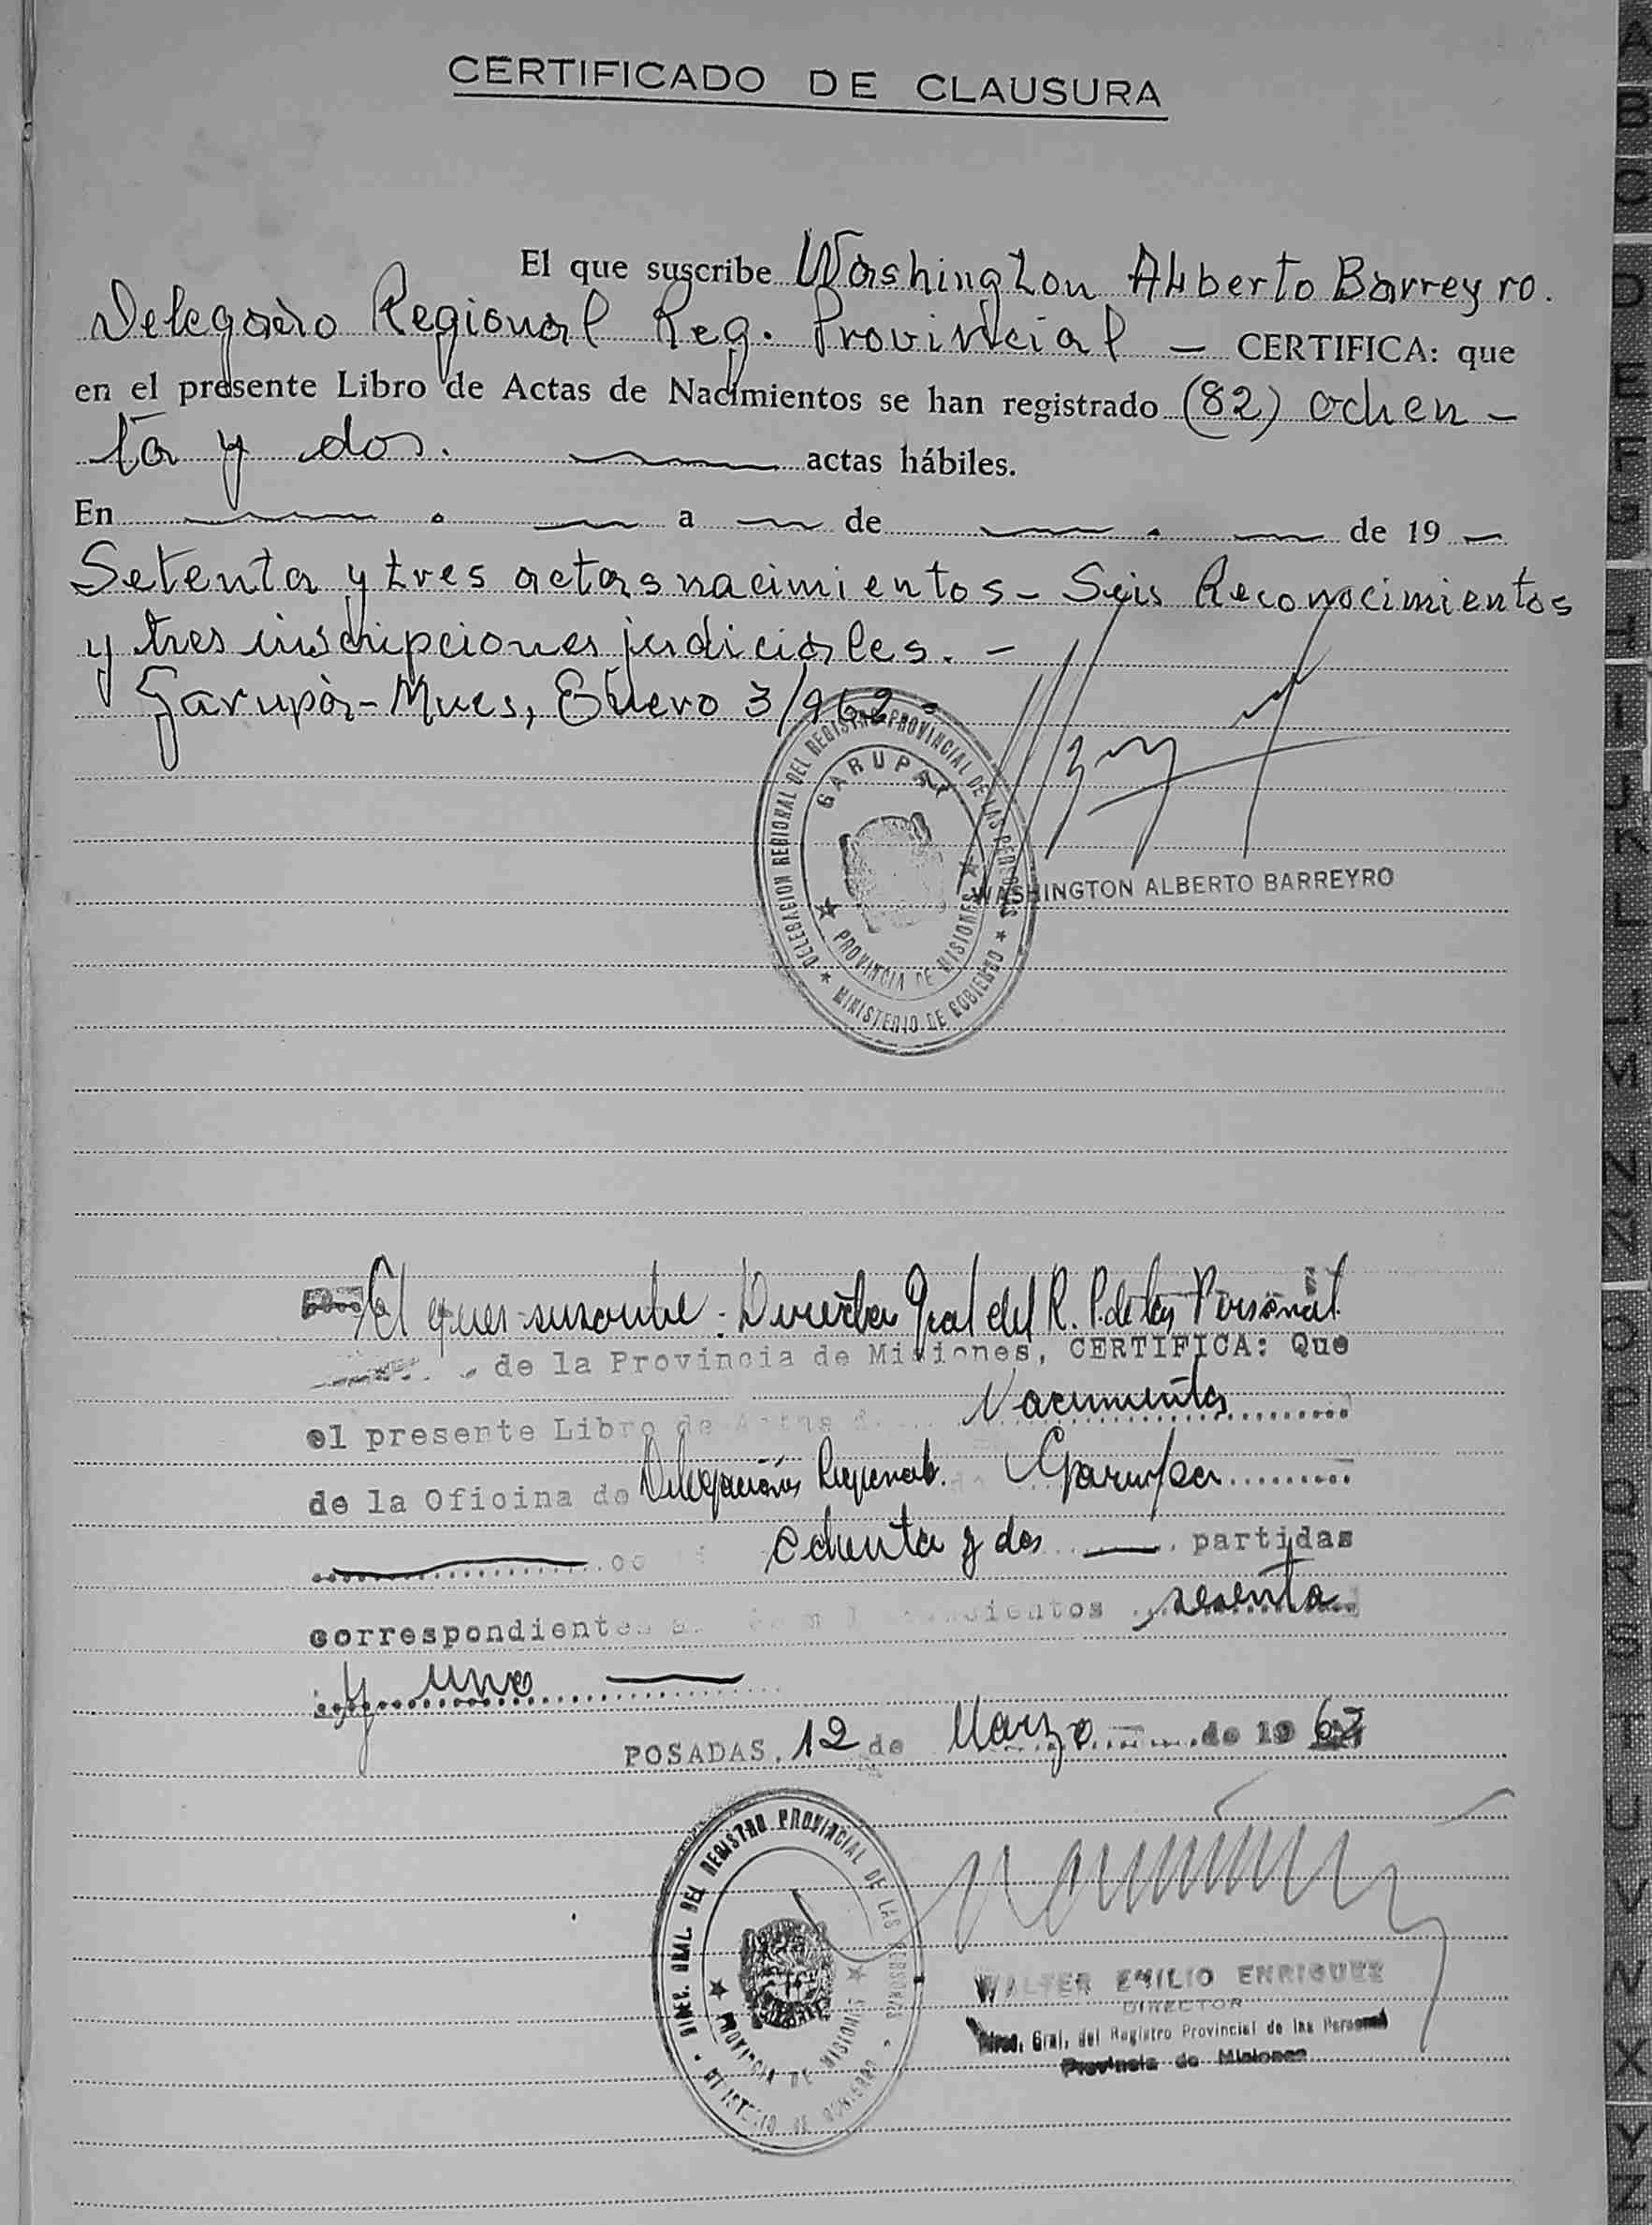 CERTIFICADO DE CLAUSURA
El que suscribe Washington Alberto Barreyro.
Delegado Regional Reg. Provincial — CERTIFICA: que
en el presente Libro de Actas de Nacimientos se han registrado (82) ochen -
ta y dos. — actas hábiles.
En — . — a — de — . — de 19 —
Setenta y tres actas nacimientos - Seis Reconocimientos
y tres inscripciones judiciales. -
Garupá - Mnes, Enero 3/962.
DELEGACION REGIONAL DEL REGISTRO PROVINCIAL DE LAS PERSONAS
GARUPA
PROVINCIA DE MISIONES
MINISTERIO DE GOBIERNO
WASHINGTON ALBERTO BARREYRO
El que suscribe: Director Gral del R. P. de las Personas
de la Provincia de Misiones, CERTIFICA: Que
el presente Libro de Actas de Nacimientos
de la Oficina de Delegación Regional Garupa
ochenta y dos — partidas
correspondientes sesenta
y uno —
POSADAS, 12 de Marzo de 1962
DIREC. GRAL. DEL REGISTRO PROVINCIAL DE LAS PERSONAS
PROVINCIA DE MISIONES
MINISTERIO DE GOBIERNO
WALTER EMILIO ENRIQUEZ
DIRECTOR
Direc. Gral. del Registro Provincial de las Personas
Provincia de Misiones
A
B
C
D
E
F
G
H
I
J
K
L
LL
M
N
Ñ
O
P
Q
R
S
T
U
V
W
X
Y
Z